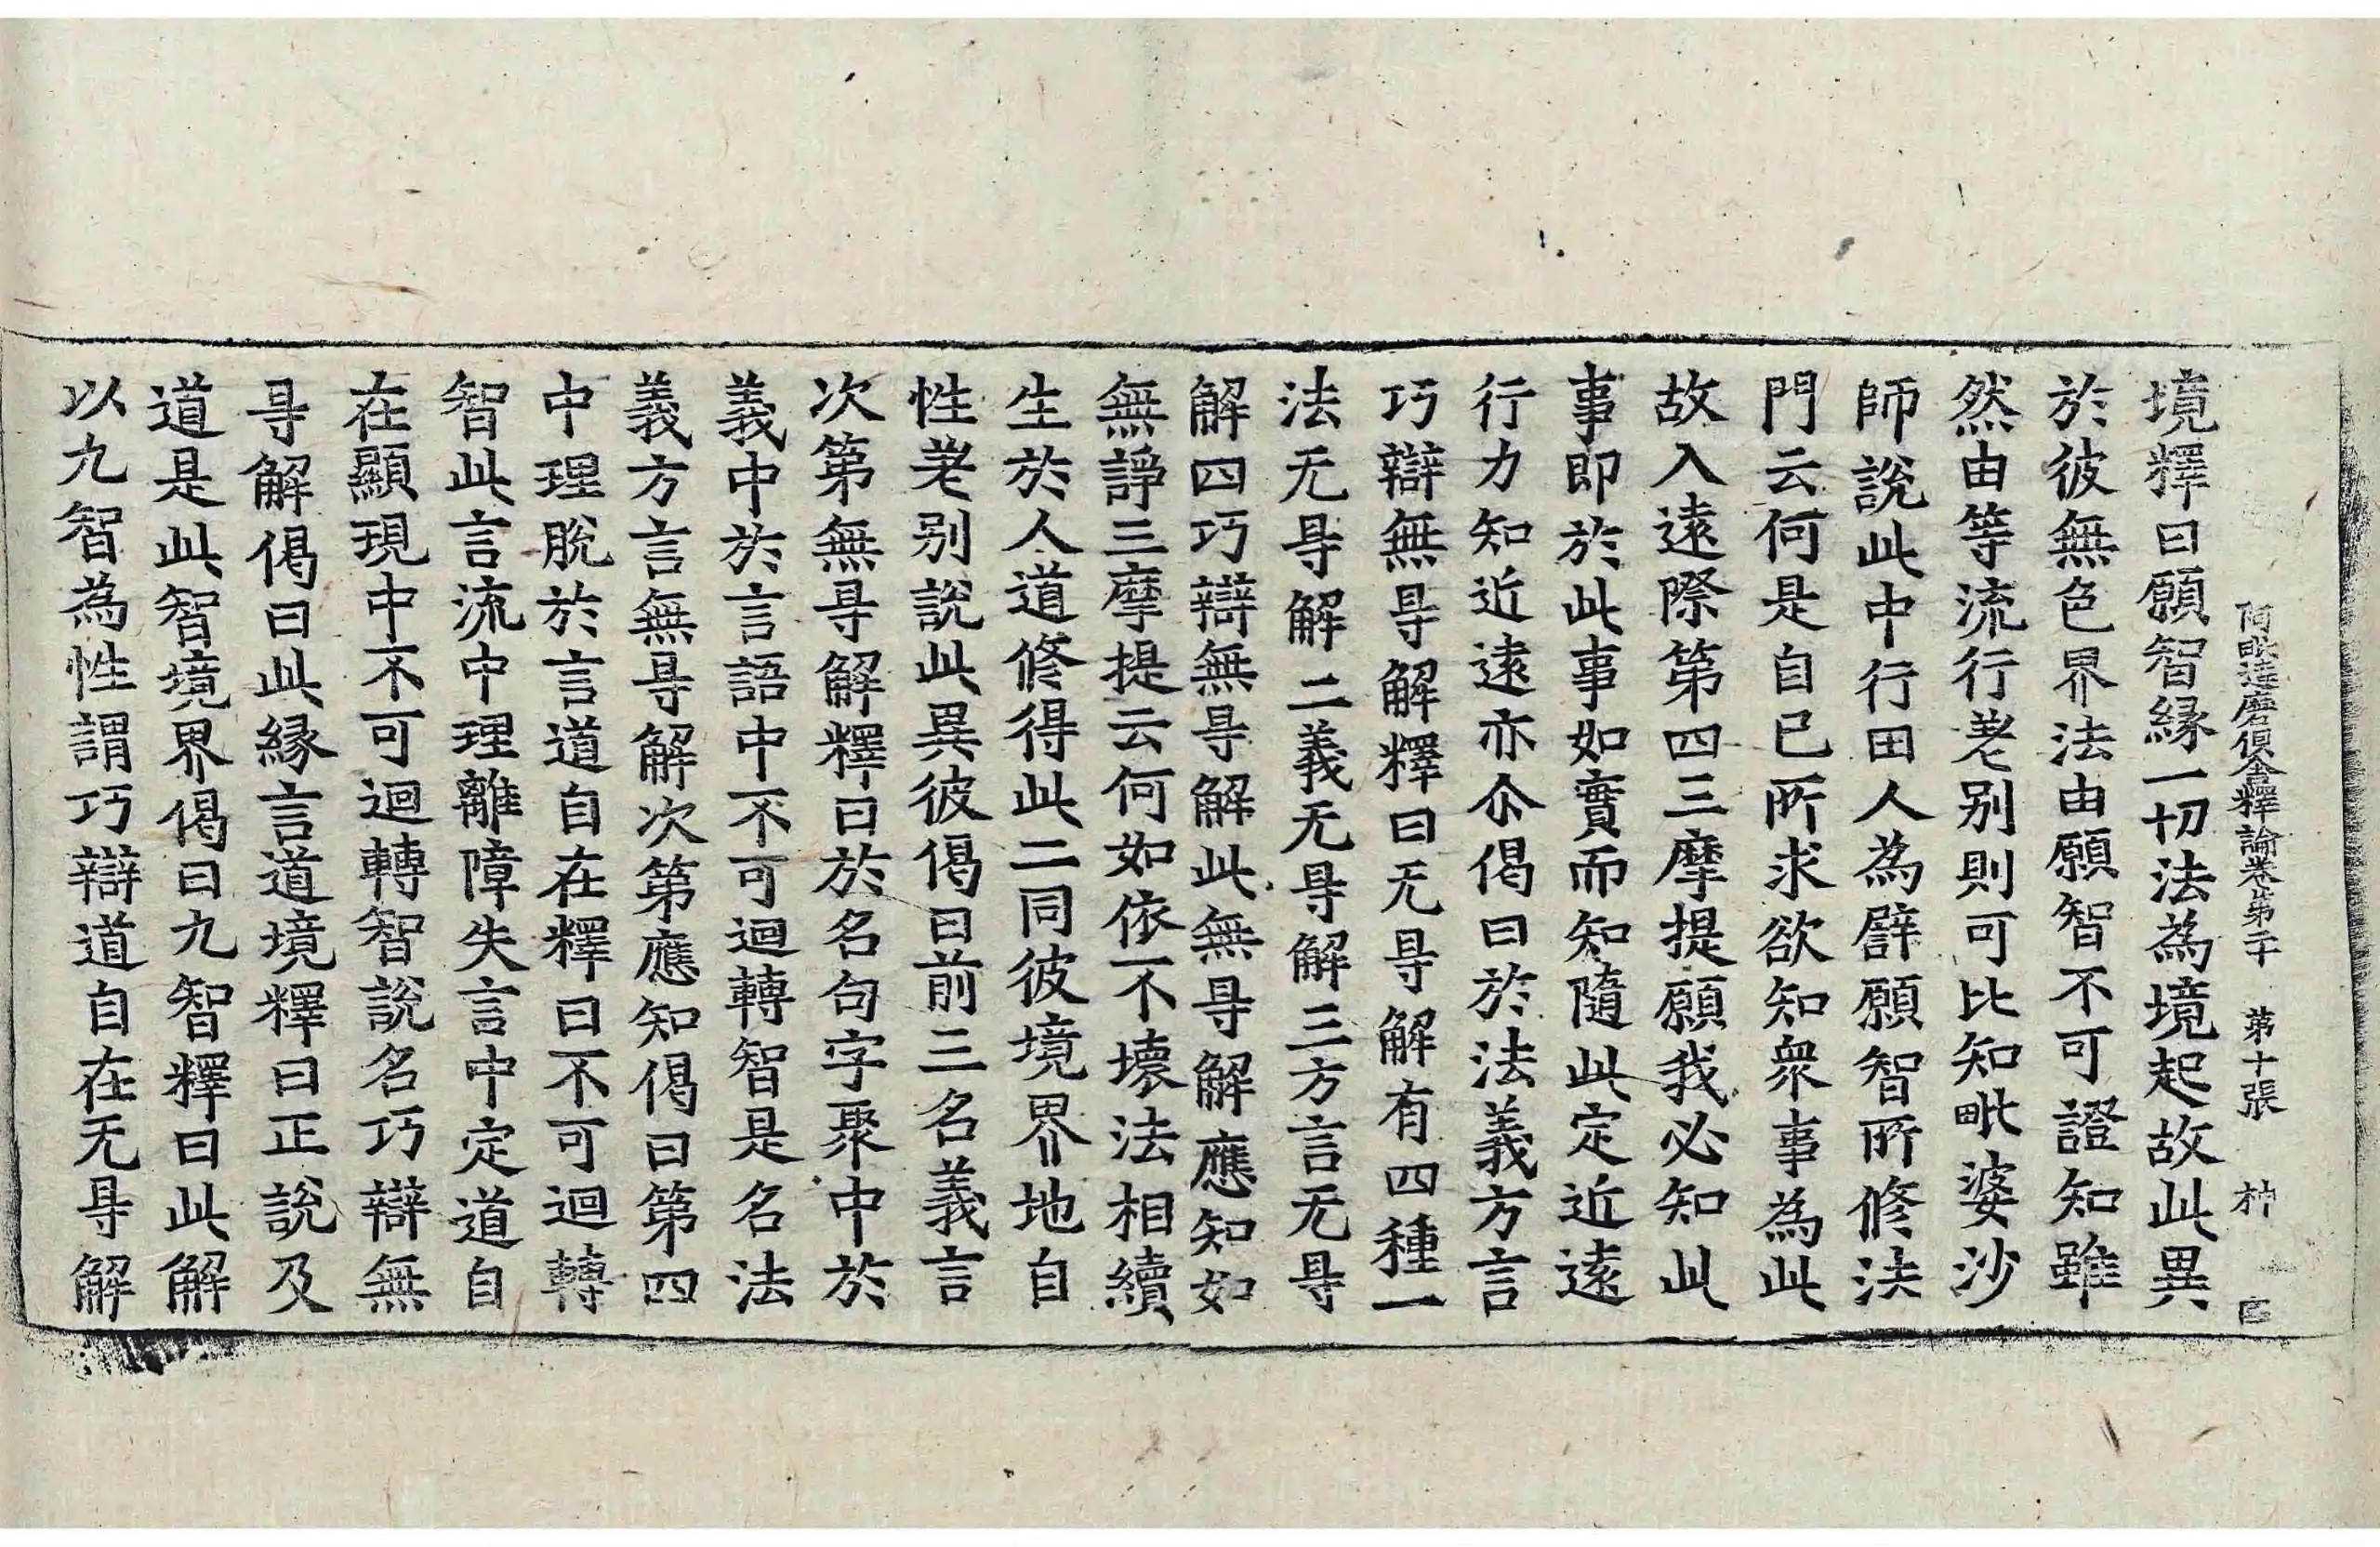 阿毗達磨俱舍釋論卷第二十　第十張
境釋曰願智緣一切法為境起故此異
於彼無色界法由願智不可證知雖
然由等流行差别則可比知毗婆沙
師說此中行田人為譬願智所修決
門云何是自已所求欲知眾事為此
故入遠際第四三摩提願我必知此
事即於此事如實而知隨此定近遠
行力知近遠亦尒偈曰於法義方言
巧辯無㝵解釋曰无㝵解有四種一
法无㝵解二義无㝵解三方言无㝵
解四巧辯無㝵解此無㝵解應知如
無諍三摩提云何如依不壞法相續
生於人道修得此二同彼境界地自
性差别說此異彼偈曰前三名義言
次第無㝵解釋曰於名句字聚中於
義中於言語中不可迴轉智是名法
義方言無㝵解次第應知偈曰第四
中理脫於言道自在釋曰不可迴轉
智此言流中理離障失言中定道自
在顯現中不可迴轉智說名巧辯無
㝵解偈曰此緣言道境釋曰正說及
道是此智境界偈曰九智釋曰此解
以九智為性謂巧辯道自在无㝵解